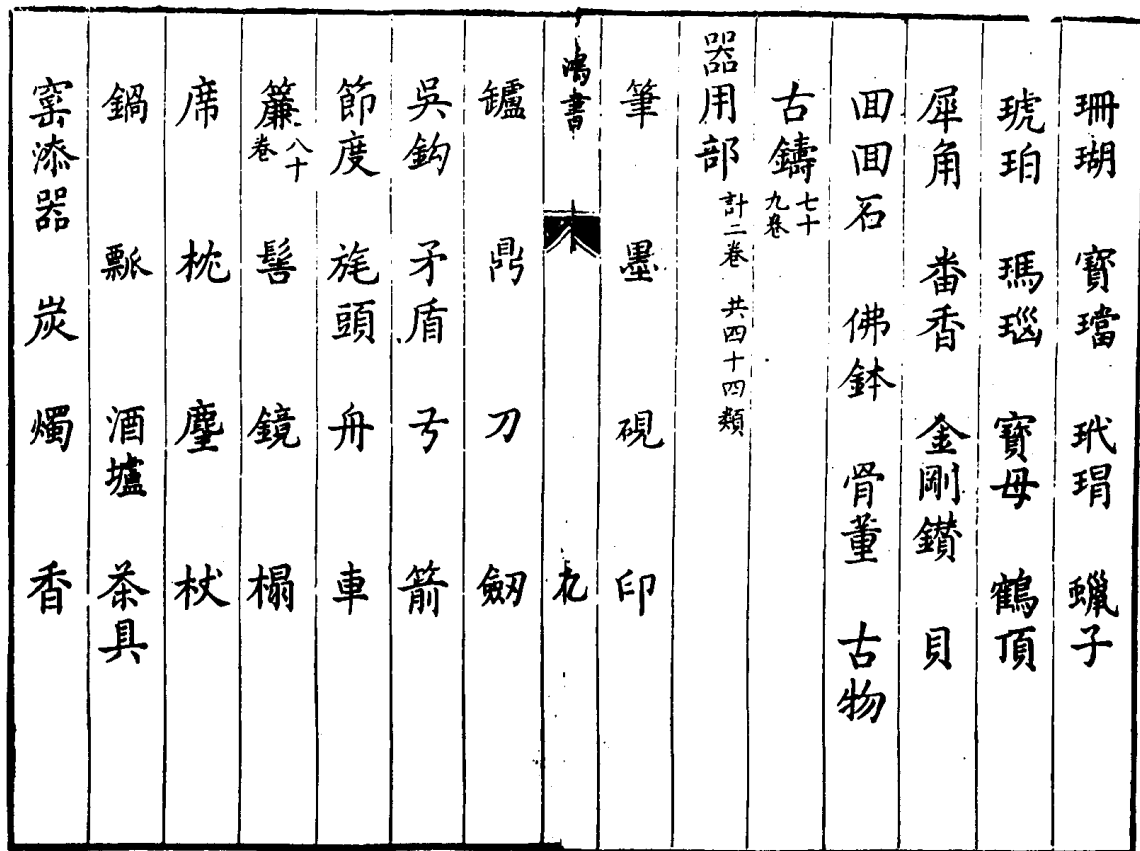 珊瑚 寶璫 玳瑁 蠟子
琥珀 瑪瑙 寶母 鶴頂
犀角 番香 金剛鑚 貝
回回石 佛鉢 骨董 古物
古鑄 七十九卷
器用部 計二卷 共四十四類
筆 墨 硯 印
鴻書 九
鑪 鼎 刀 劒
吳鈎 矛盾 弓 箭
節度 旄頭 舟 車
簾 八十卷 髻 鏡 榻
席 枕 麈 杖
鍋 瓢 酒壚 茶具
窯漆器 炭 燭 香